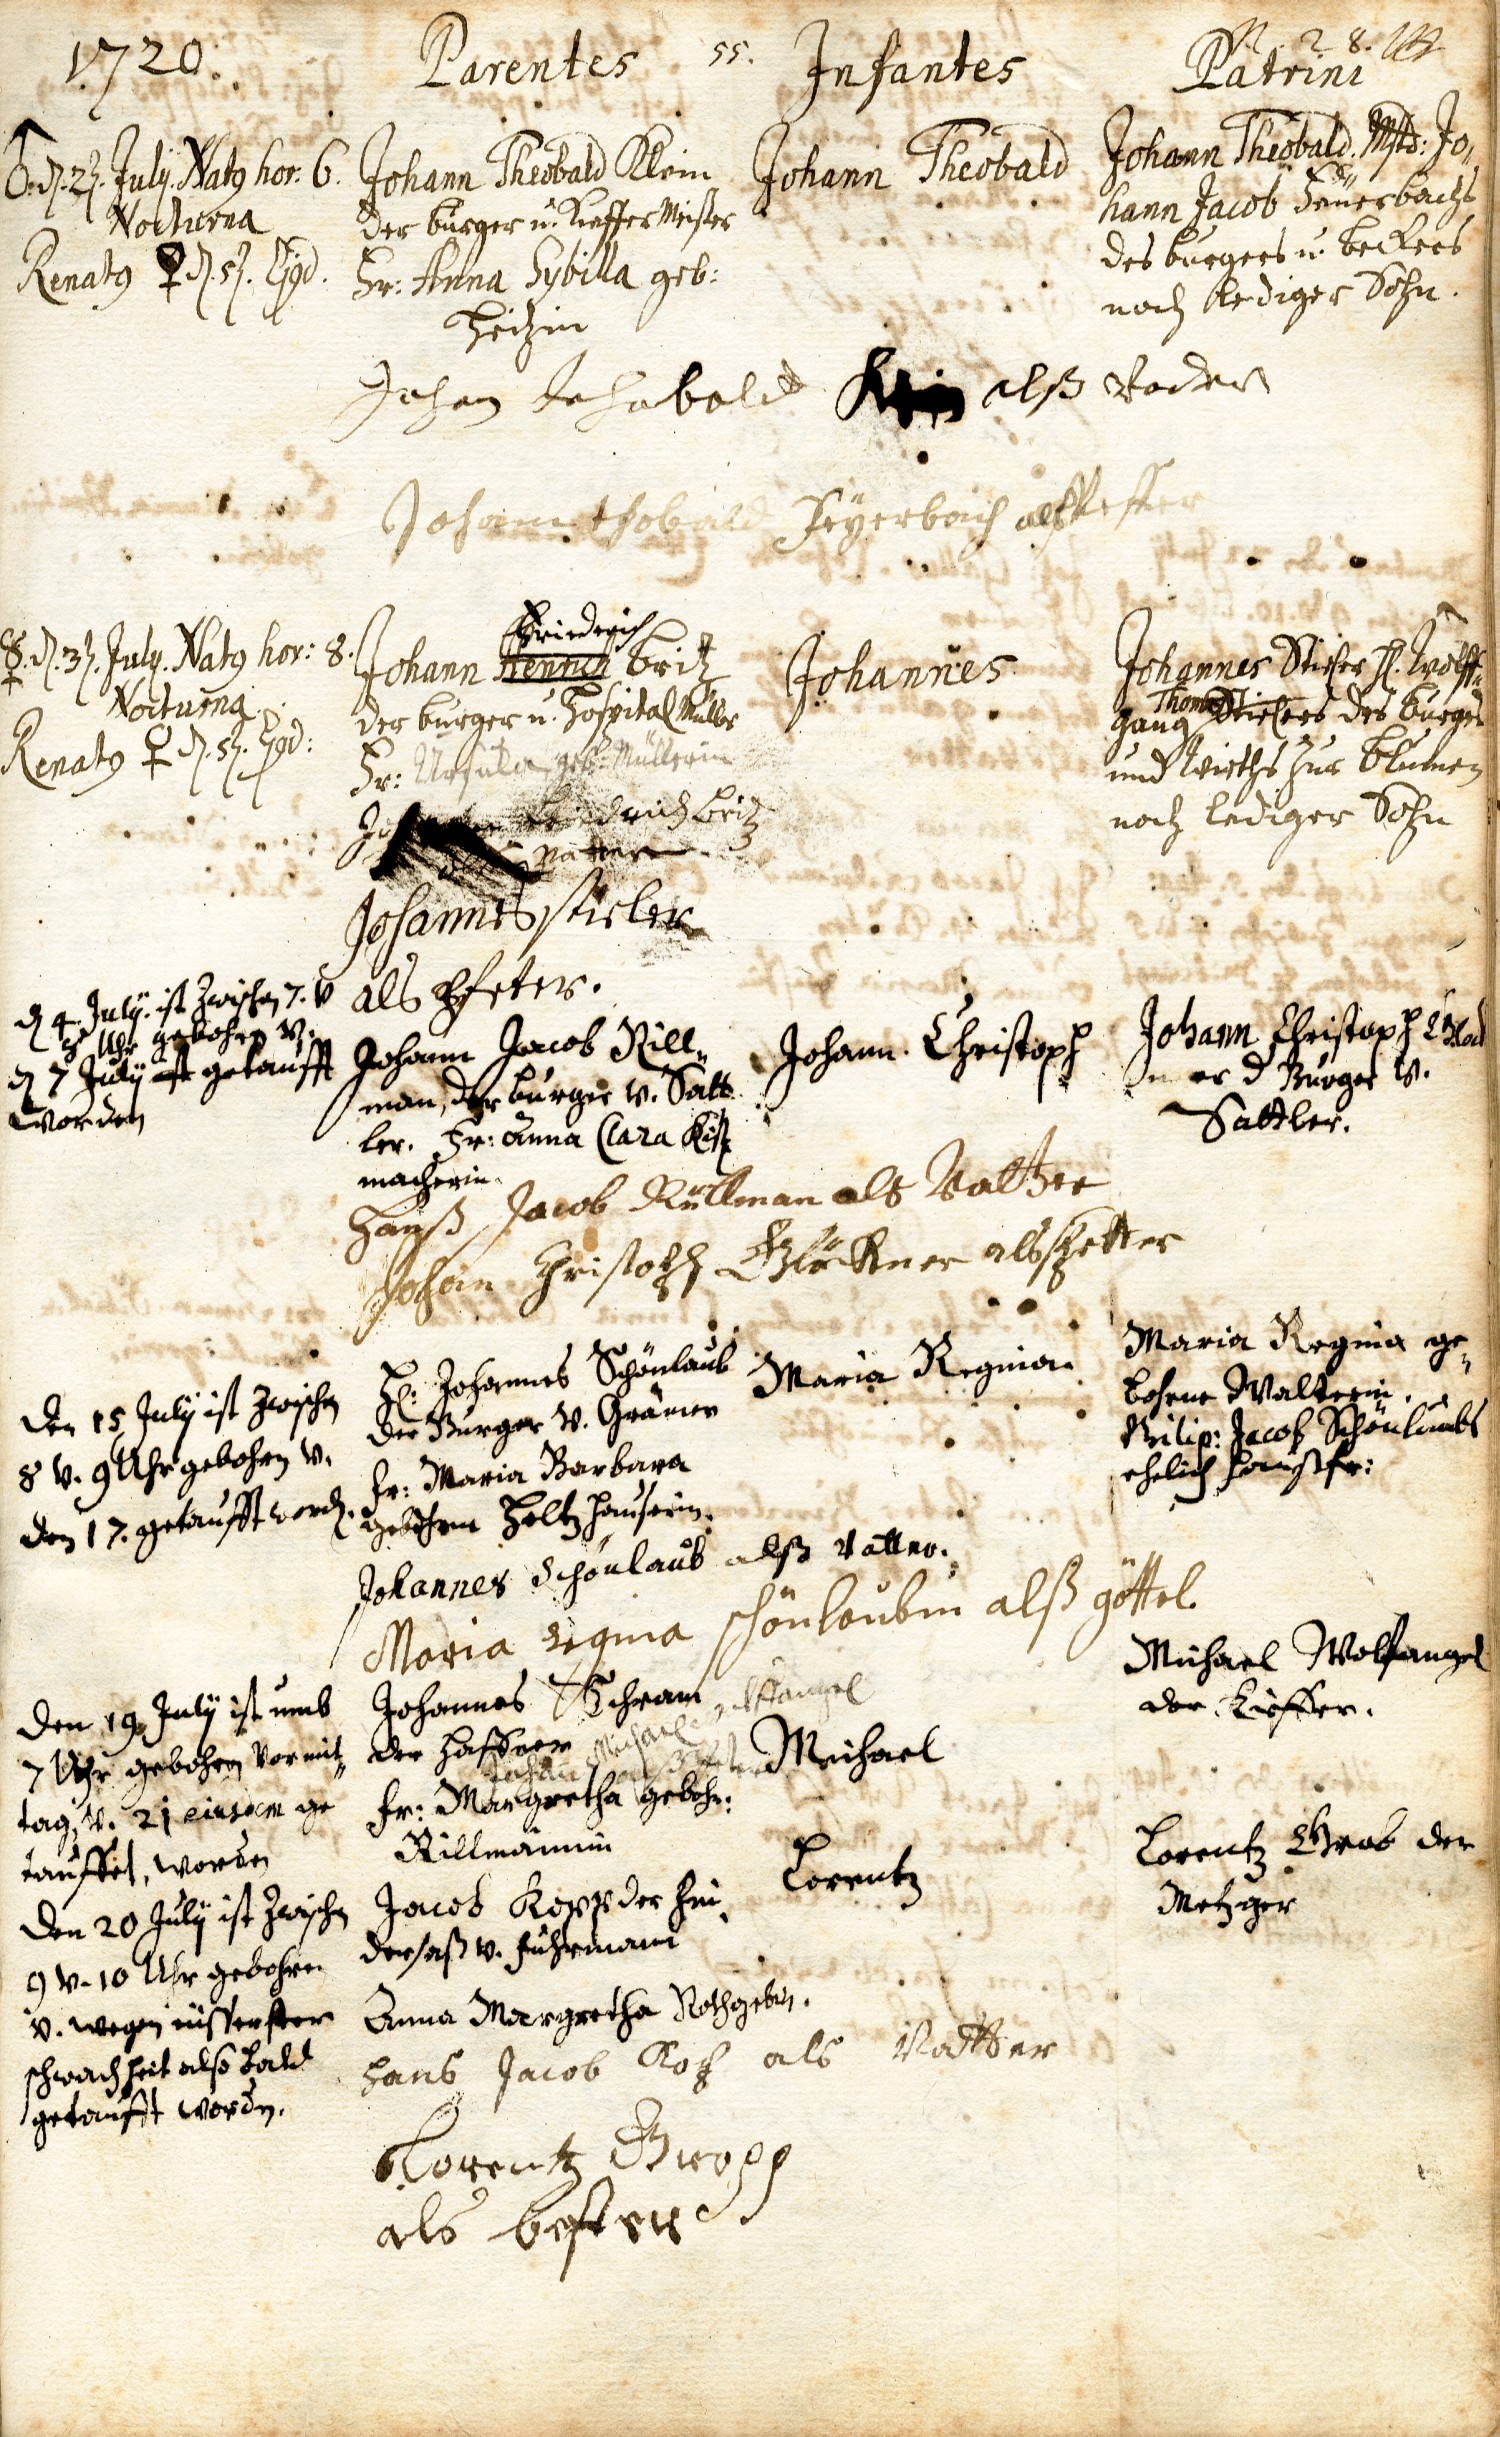 1720.
Parentes
55.
Infantes
Patrini
N. 28.
♂. d. 2t. July. Natq hor. 6.
Nocturna
Renatq ♀ d. 5t. Ejqd.
Johann Theobald Klein
der burger u. Kieffer Meister
Fr: Anna Sybilla geb:
Johann Theobald
Johann Theobald. Mstr: Jo„
hann Jacob Feuerbachs
des burgers u. beckers
noch lediger Sohn.
Johan Dehobold Klein alß Vader
Johann thobald Feyerbach alß Pfetter
☿. d. 3t. July. Natq hor: 8.
Nocturna.
Renatq ♀ d. 5t. Ejqd:
Friederich
Johann Henrich britz
der burger u. Hospital Müller
Fr: Ursula geb. Müllerin
Johannes
Johannes Stieler H. Wolff„
Thomas
gang Stielers des burgers
und Wirths zur blumen
noch lediger Sohn
friedrich britz
als Vatter
Johannes stieler
als Pfeter.
d 4. July. ist zwischen 7. v
8 Uhr gebohren v.
d 7 July getaufft
worden
Johann Jacob Rill„
man, der burger v. Satt
ler. Fr: Anna Clara Kist
macherin.
Johann Christoph
Johann Christoph Glöck
ner d Burger v.
Sattler.
Hanß Jacob Rüllman als Vatter
Johan Christoph Glöckner als Petter
Den 15 July ist zwischen
8 v. 9 Uhr gebohren v.
den 17. getaufft word.
H: Johannes Schönlaub
der Burger v. Crämer
fr: Maria Barbara
gebohrne Holtzhauserin.
Maria Regina.
Maria Regina ge„
bohrne Walterin,
Philip: Jacob Schönlaubs
ehelich haußfr:
Johannes Schönlaub alß Vatter.
Maria regina schönlaubin alß göttel
Den 19 July ist umb
7 Uhr gebohren Vormit„
tag, v. 21 eiusdem ge
tauffet, worden
Johannes Schram
der haffner
fr: Margretha gebohr:
Rillmännin
Michael
Michael Wolfangel
der Kieffer.
Den 20 July ist zwischen
9 v. 10 Uhr gebohren
v. wegen eüsserster
schwachheit also bald
getaufft worden.
Jacob Kopp der hin„
dersaß v. fuhrmann
Anna Margretha Rothgebin.
Lorentz
Lorentz Grob der
Metzger
hans Jacob Kop als Vatter
Lorentz Gropp
als better